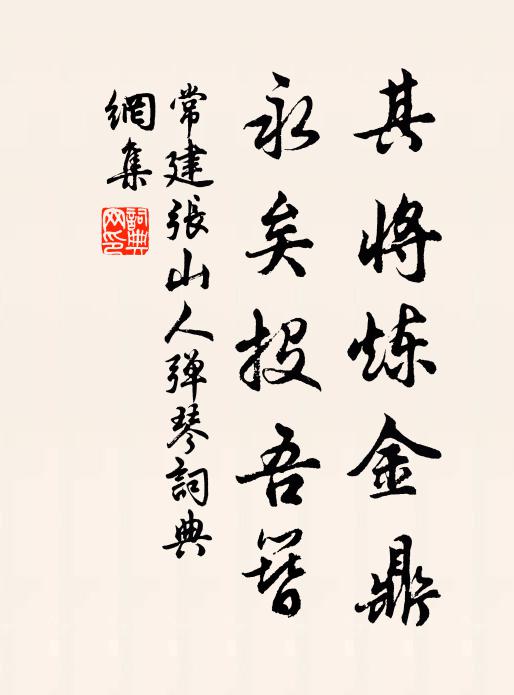 其将炼金鼎
永矣投吾簪
常建張山人弹琴詞典
網集
詞典
网印